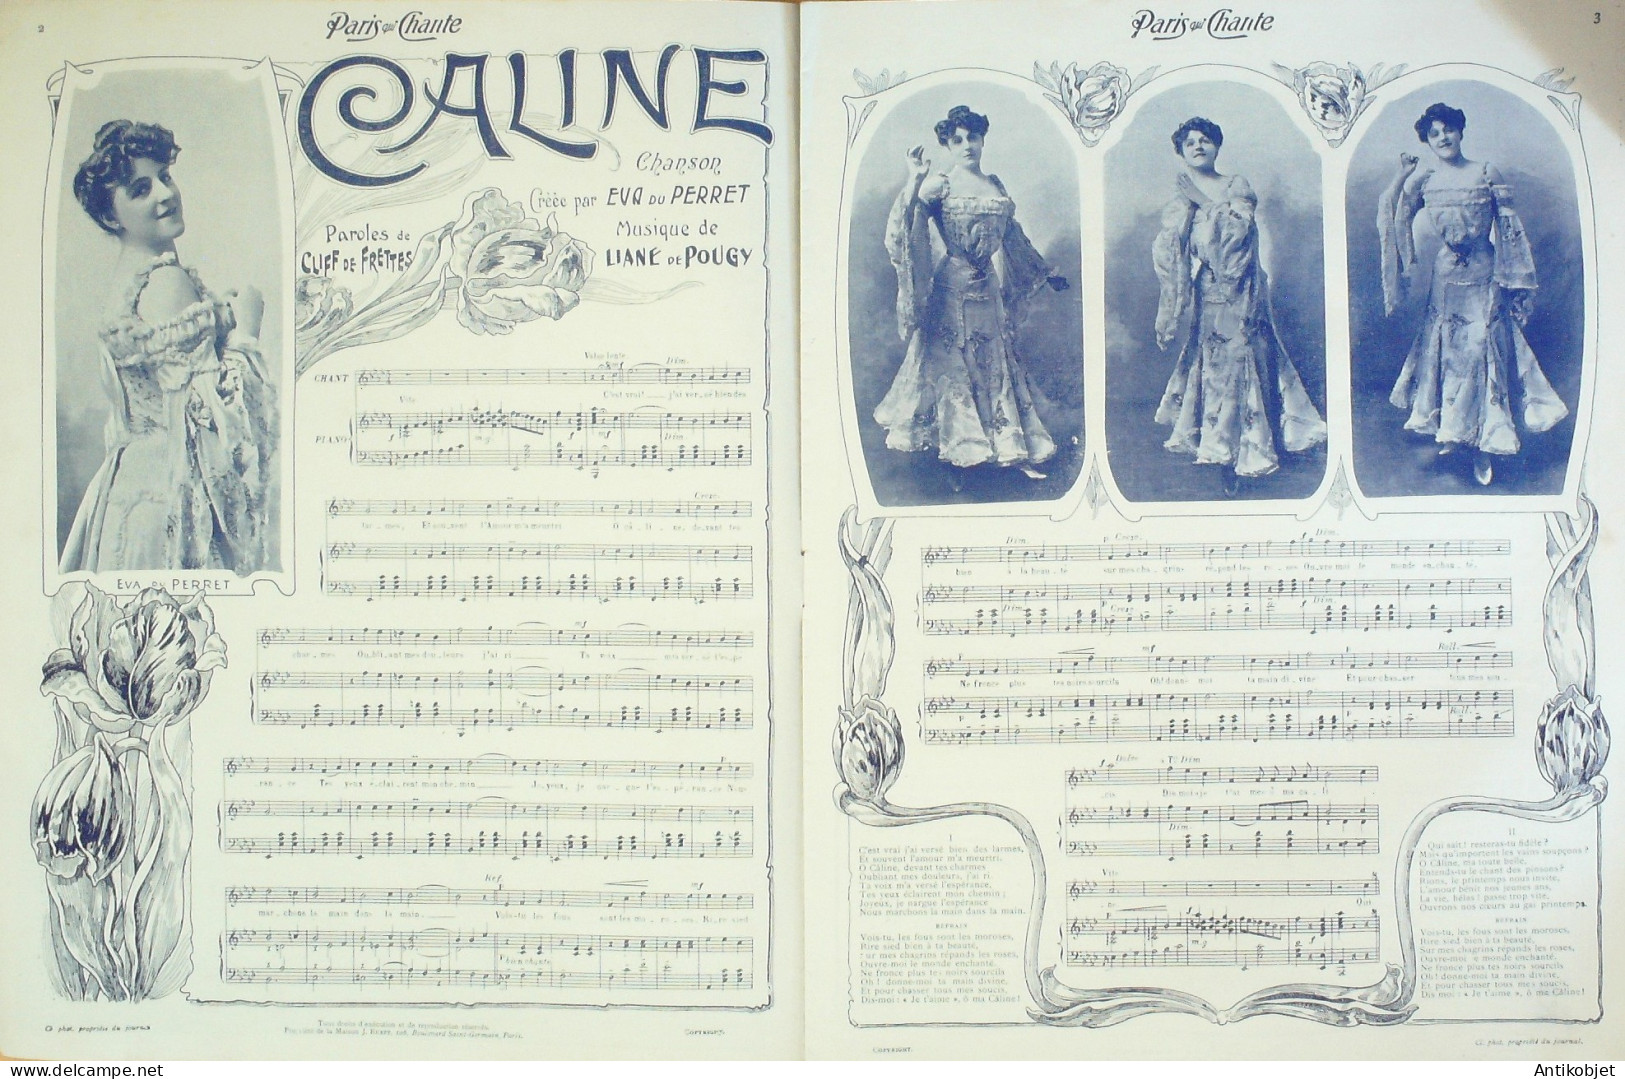 2
Paris qui Chante
CALINE
Chanson
Créée par EVA DU PERRET
Paroles de
CLIFF DE FRETTES
Musique de
LIANE DE POUGY
EVA DU PERRET
Valse lente
Dim.
CHANT
C'est vrai! j'ai ver_sé bien des
Vite
PIANO
Dim.
Cresc.
lar_mes, Et sou_vent l'Amour m'a meurtri O câ_li_ne, de_vant tes
mf
char_mes Ou_bli_ant mes dou_leurs j'ai ri Ta voix m'a ver_sé l'es_pé
ran_ce Tes yeux é_clai_rent mon che_min Jo_yeux, je nar_gue l'es_pé_ran_ce Nous
Ref.
mf
mar_chons la main dans la main. Vois-tu les fous sont les mo_ro_ses, Ri_re sied
Cl. phot. propriété du journal
Tous droits d'exécution et de reproduction réservés.
Boulevard Saint-Germain, Paris.
COPYRIGHT.
Paris qui Chante
3
Dim.
p Cresc.
f Dim.
bien à ta beau_té sur mes cha_grins ré_pand les ro_ses Ou_vre moi le monde en_chan_té.
Dim.
p Cresc.
f Dim.
p
mf
Rall.
Ne fronce plus tes noirs sourcils Oh! donne moi ta main di_vine Et pour chas_ser tous mes sou_
p
Rall.
Dim
cis Dis-moi je t'ai_me? ma câ_li
Dim.
Vite
ne. Oui
I
C'est vrai j'ai versé bien des larmes,
Et souvent l'amour m'a meurtri.
O Câline, devant tes charmes
Oubliant mes douleurs, j'ai ri
Ta voix m'a versé l'espérance,
Tes yeux éclairent mon chemin ;
Joyeux, je nargue l'espérance
Nous marchons la main dans la main.
REFRAIN
Vois-tu, les fous sont les moroses,
Rire sied bien à ta beauté,
Sur mes chagrins répands les roses,
Ouvre-moi le monde enchanté.
Ne fronce plus tes noirs sourcils
Oh ! donne-moi ta main divine,
Et pour chasser tous mes soucis,
Dis-moi : « Je t'aime », ô ma Câline !
II
Qui sait ! resteras-tu fidèle ?
Mais qu'importent les vains soupçons ?
O Câline, ma toute belle,
Entends-tu le chant des pinsons ?
Rions, le printemps nous invite,
L'amour bénit nos jeunes ans,
La vie, hélas ! passe trop vite,
Ouvrons nos cœurs au gai printemps.
REFRAIN
Vois-tu, les fous sont les moroses,
Rire sied bien à ta beauté,
Sur mes chagrins répands les roses,
Ouvre-moi le monde enchanté.
Ne fronce plus tes noirs sourcils
Oh ! donne-moi ta main divine,
Et pour chasser tous mes soucis,
Dis-moi : « Je t'aime », ô ma Câline !
COPYRIGHT.
Cl. phot. propriété du journal.
Antikobjet